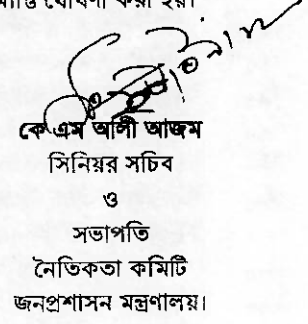 ঘোষণা করা হয়।
কে এম আলী আজম
সিনিয়র সচিব
ও
সভাপতি
নৈতিকতা কমিটি
জনপ্রশাসন মন্ত্রণালয়।